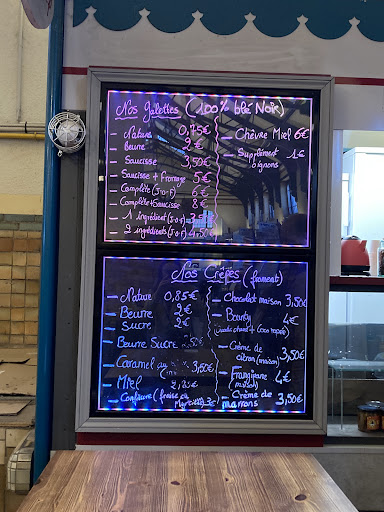 Nos galettes (100% blé Noir)
- Nature 0,75€
- Beurre 2€
- Saucisse 3,50€
- Saucisse + Fromage 5€
- Complète (J.O.F) 6€
- Complète+Saucisse 8€
- 1 ingrédient (J.O.F) 3,50€
- 2 ingrédients (J.O.F) 4,50€
- Chèvre Miel 6€
- Supplément oignons 1€
Nos Crêpes (froment)
- Nature 0,85€
- Beurre 2€
- Sucre 2€
- Beurre Sucre 50€
- Caramel au 3,50€
- Miel 2,25€
- Confiture (fraise de 3€
- Chocolat maison 3,50€
- Bounty 4€
- Crème de
citron (maison) 3,50€
- Frangipane 4€
(maison)
- Crème de
marrons 3,50€